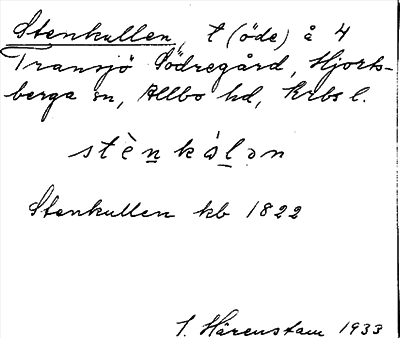 Stenkullen, t (öde) å 4
Transjö Södregård, Hjorts-
berga sn, Allbo hd, Krbs l.
stènkálən
Stenkullen kb 1822
I. Härenstam 1933